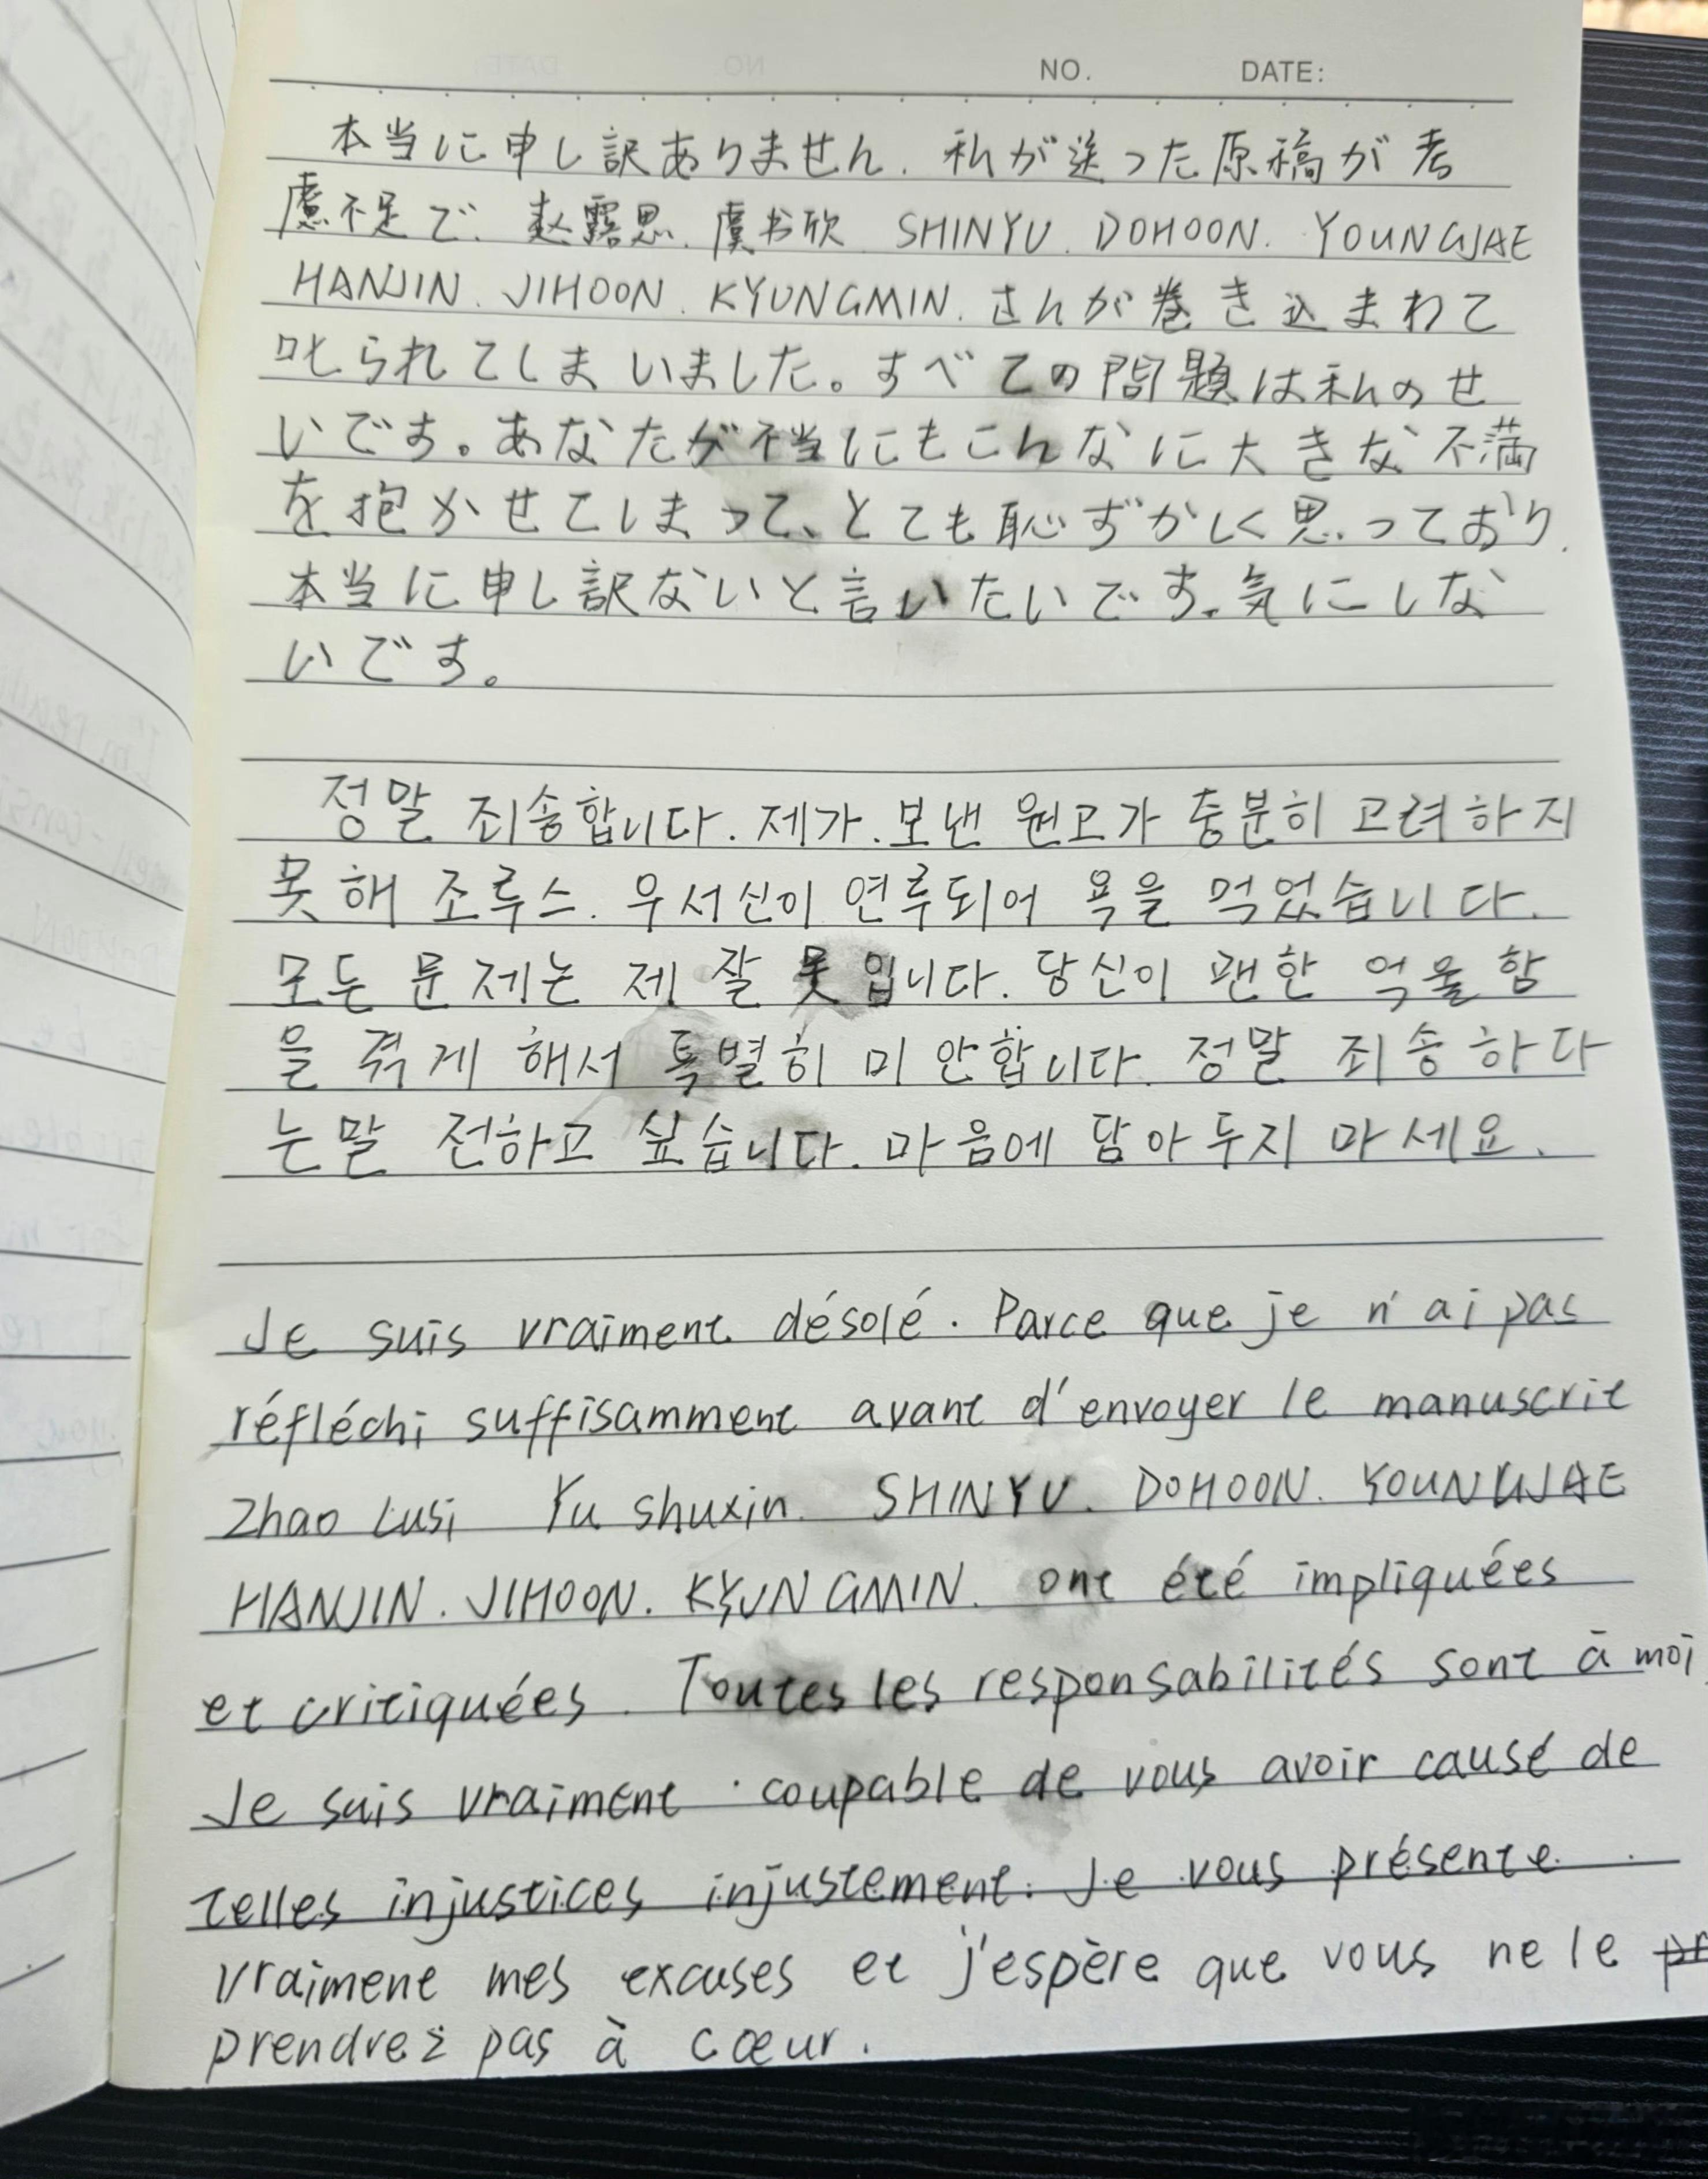 NO. DATE:
本当に申し訳ありません. 私が送った原稿が考
慮不足で. 赵露思. 虞书欣. SHINYU. DOHOON. YOUNGJAE
HANJIN. JIHOON. KYUNGMIN. さんが巻き込まわて
叱られてしまいました。すべての問題は私のせ
いです。あなたが不当にもこんなに大きな不満
を抱かせてしまって、とても恥ずかしく思っており.
本当に申し訳ないと言いたいです。気にしな
いです。
정말 죄송합니다. 제가.보낸 원고가 충분히 고려하지
못해 조루스. 우서신이 연루되어 욕을 먹었습니다.
모든 문제는 제 잘못입니다. 당신이 괜한 억울함
을 겪게 해서 특별히 미안합니다. 정말 죄송하다
는말 전하고 싶습니다. 마음에 담아두지 마세요.
Je suis vraiment désolé. Parce que je n'ai pas
réfléchi suffisamment avant d'envoyer le manuscrit
Zhao Lusi Yu shuxin. SHINYU. DOHOON. YOUNGJAE
HANJIN. JIHOON. KYUNGMIN. ont été impliquées
et critiquées. Toutes les responsabilités sont à moi
Je suis vraiment coupable de vous avoir causé de
telles injustices injustement. Je vous présente
vraiment mes excuses et j'espère que vous ne le
prendrez pas à cœur.